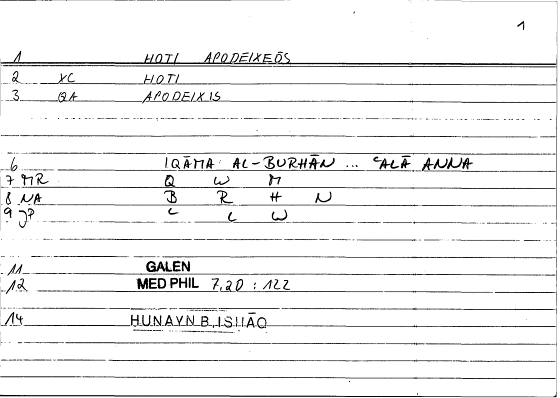 1
1 HOTI APODEIXEŌS
2 XC HOTI
3 QA APODEIXIS
6 IQĀMA AL-BURHĀN ... ʿALĀ ANNA
7 MR Q W M
8 NA B R H N
9 JP ʿ L W
11 GALEN
12 MED PHIL 7,20 : 122
14 ḤUNAYN B. ISḤĀQ